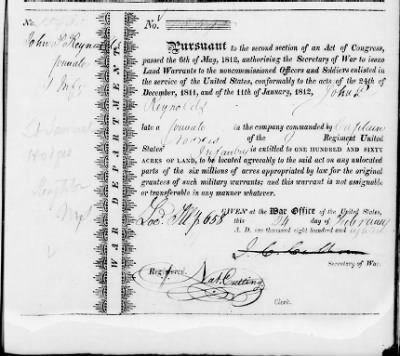 No.
John P. Reynolds
private
WAR DEPARTMENT
No.
Pursuant to the second section of an Act of Congress,
passed the 6th of May, 1812, authorising the Secretary of War to issue
Land Warrants to the noncommissioned Officers and Soldiers enlisted in
the service of the United States, conformably to the acts of the 24th of
December, 1811, and of the 11th of January, 1812, John P.
Reynolds
late a private in the company commanded by Captain
of the Regiment United
States' Infantry is entitled to ONE HUNDRED AND SIXTY
ACRES OF LAND, to be located agreeably to the said act on any unlocated
parts of the six millions of acres appropriated by law for the original
grantees of such military warrants; and this warrant is not assignable
or transferable in any manner whatever.
GIVEN at the War Office of the United States,
this day of February
A. D. one thousand eight hundred and
J. C. Calhoun
Secretary of War.
Registered.
Nat. Cutting
Clerk.